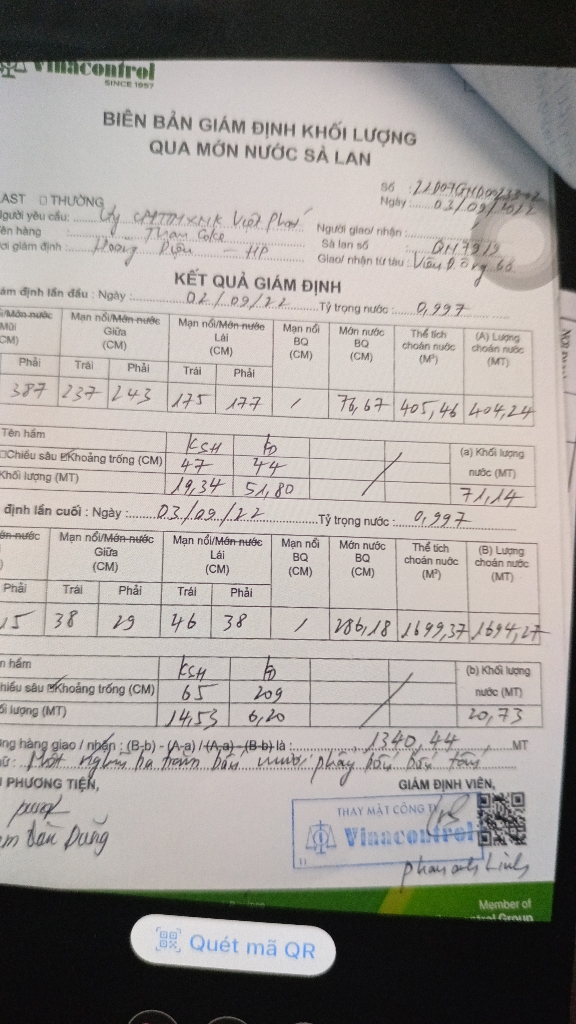 Vinacontrol
SINCE 1957
BIÊN BẢN GIÁM ĐỊNH KHỐI LƯỢNG
QUA MỚN NƯỚC SÀ LAN
AST □ THƯỜNG
Số :
Ngày : 03/09/2022
Người yêu cầu: Cty CPTTMXNK Việt Phát
Người giao/ nhận :
ên hàng : Than Coke
Sà lan số :
ơi giám định : Hoàng Diệu - HP
Giao/ nhận từ tàu : Viễn Đông 66
KẾT QUẢ GIÁM ĐỊNH
ám định lần đầu : Ngày : 02/09/22 Tỷ trọng nước : 0,997
i/Mớn nước Mũi (CM) Mạn nổi/Mớn nước Giữa (CM) Mạn nổi/Mớn nước Lái (CM) Mạn nổi BQ (CM) Mớn nước BQ (CM) Thể tích choán nước (M³) (A) Lượng choán nước (MT)
Phải Trái Phải Trái Phải
387 237 243 175 177 / 76,67 405,46 404,24
Tên hầm KSH (a) Khối lượng nước (MT)
□Chiều sâu ☑Khoảng trống (CM) 47 44
Khối lượng (MT) 19,34 51,80 71,14
định lần cuối : Ngày : 03/09/22 Tỷ trọng nước : 0,997
ớn nước Mạn nổi/Mớn nước Giữa (CM) Mạn nổi/Mớn nước Lái (CM) Mạn nổi BQ (CM) Mớn nước BQ (CM) Thể tích choán nước (M³) (B) Lượng choán nước (MT)
Phải Trái Phải Trái Phải
15 38 29 46 38 / 286,18 1699,37 1694,27
n hầm KSH (b) Khối lượng nước (MT)
hiều sâu ☑Khoảng trống (CM) 65 209
ối lượng (MT) 14,53 6,20 20,73
ng hàng giao / nhận : (B-b) - (A-a) / (A-a) - (B-b) là : 1340,44 MT
ữ : Một nghìn ba trăm bốn mươi phẩy bốn bốn tấn
PHƯƠNG TIỆN, GIÁM ĐỊNH VIÊN,
THAY MẶT CÔNG TY
Vinacontrol
11
Phan Anh Linh
Member of
trol Group
Quét mã QR